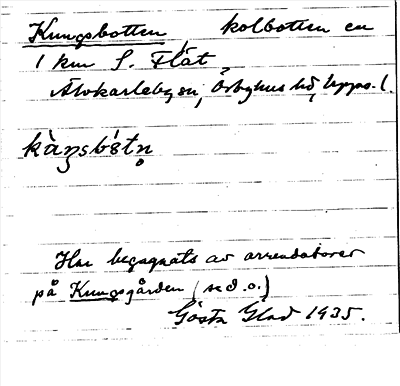 Kungsbotten, kolbotten en
1 km S. Flåt,
Älvkarleby sn, Örbyhus hd, Upps. l.
kàŋsbòtn̥
Har begagnats av arrendatorer
på Kungsgården (se d. o.)
Gösta Glad 1935.